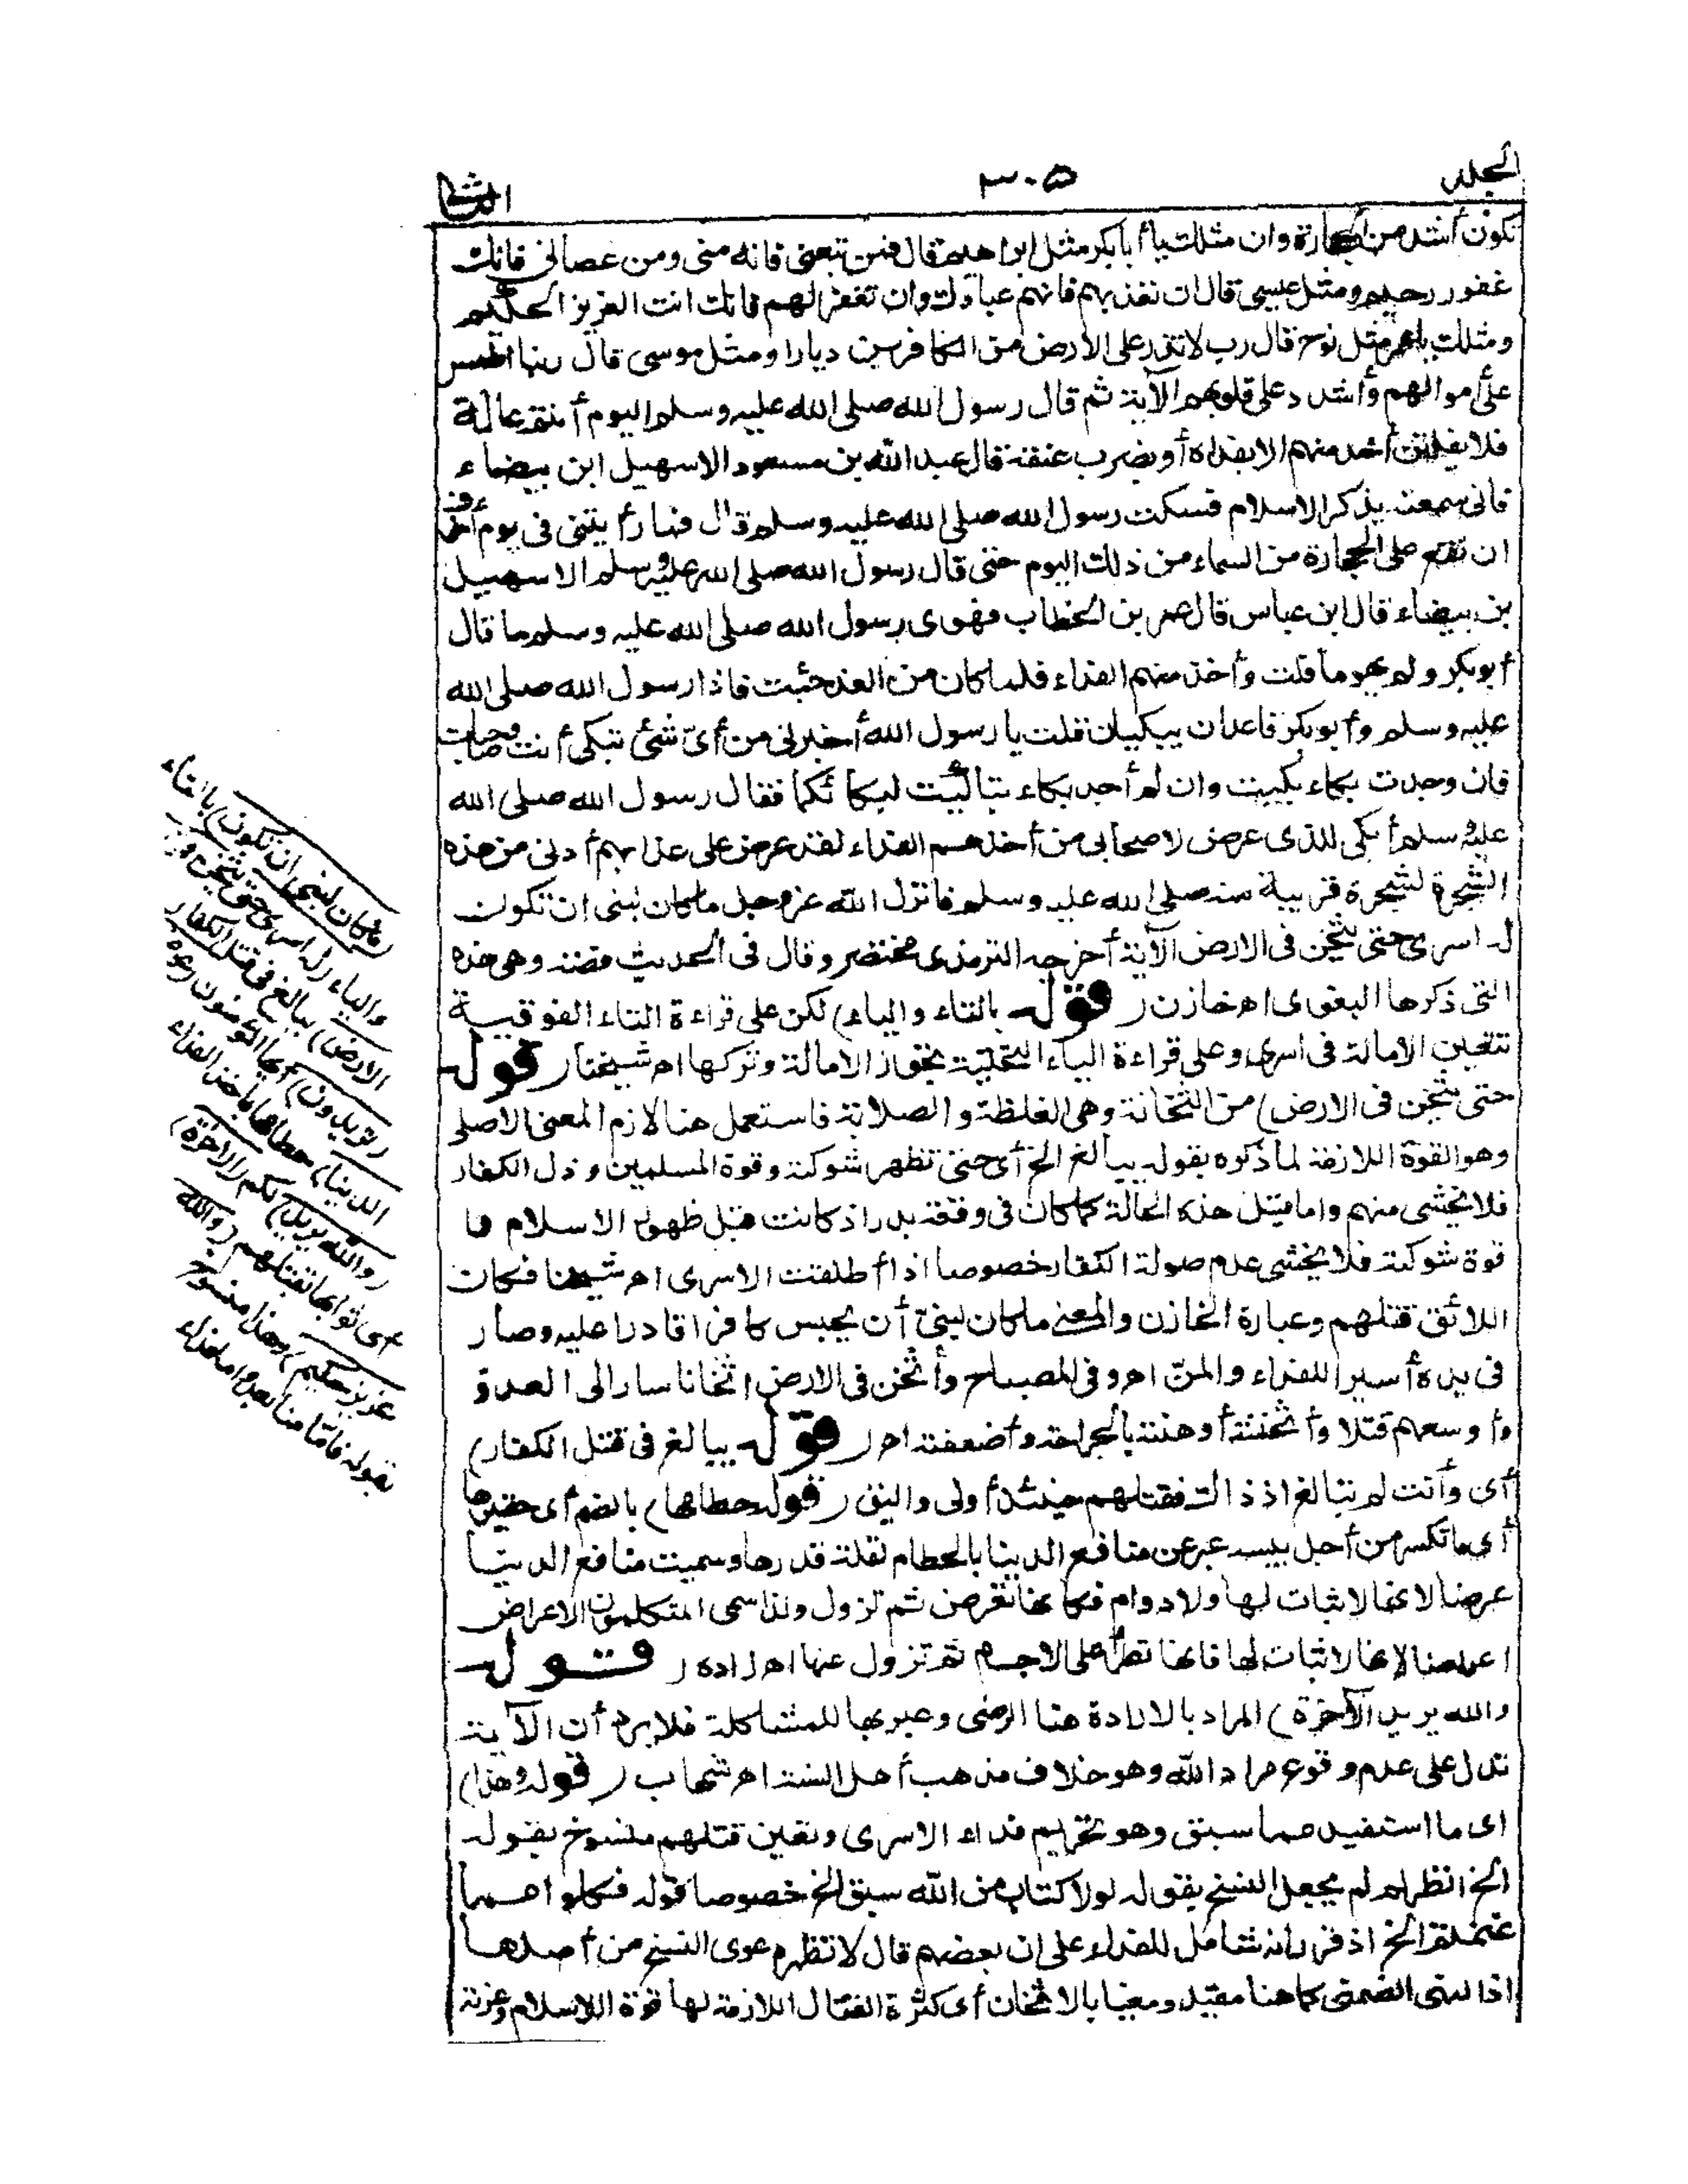 المجلد ٣٠٥ الثانى
تكون أشد من الحجارة وان مثلك يا أبا بكر مثل ابراهيم قال فمن تبعنى فانه منى ومن عصانى فانك
غفور رحيم ومثل عيسى قال ان تعذبهم فانهم عبادك وان تغفر لهم فانك انت العزيز الحكيم
ومثلك يا عمر مثل نوح قال رب لا تذر على الارض من الكافرين ديارا ومثل موسى قال ربنا اطمس
على أموالهم وأشدد على قلوبهم الآية ثم قال رسول الله صلى الله عليه وسلم اليوم أنتم عالة
فلا يفلتن أحد منهم الا بفداء أو بضرب عنقه قال عبد الله بن مسعود الا سهيل ابن بيضاء
فانى سمعته يذكر الاسلام فسكت رسول الله صلى الله عليه وسلم قال فما رأيتنى فى يوم أخوف
ان تقع على الحجارة من السماء من ذلك اليوم حتى قال رسول الله صلى الله عليه وسلم الا سهيل
بن بيضاء قال ابن عباس قال عمر بن الخطاب فهوى رسول الله صلى الله عليه وسلم ما قال
أبو بكر ولم يهو ما قلت وأخذ منهم الفداء فلما كان من الغد جئت فاذا رسول الله صلى الله
عليه وسلم وأبو بكر قاعدان يبكيان فقلت يا رسول الله أخبرنى من أىّ شئ تبكى أنت وصاحبك
فان وجدت بكاء بكيت وان لم أجد بكاء تباكيت لبكائكما فقال رسول الله صلى الله
عليه وسلم أبكى للذى عرض لاصحابى من أخذهم الفداء لقد عرض على عذابهم أدنى من هذه
الشجرة لشجرة قريبة منه صلى الله عليه وسلم فانزل الله عز وجل ما كان لنبى ان تكون
له اسرى حتى يثخن فى الارض الآية أخرجه الترمذى مختصر وقال فى الحديث قصة وهى هذه
التى ذكرها البغوى اه خازن (قوله بالتاء والياء) لكن على قراءة التاء الفوقية
تتعين الامالة فى اسرى وعلى قراءة الياء التحتية تجوز الامالة وتركها اه شيخنا (قوله
حتى يثخن فى الارض) من الثخانة وهى الغلظة والصلابة فاستعمل هنا لازم المعنى الاصلى
وهو القوة اللازمة لما ذكره بقوله يبالغ الخ أى حتى تظهر شوكته وقوة المسلمين وذل الكفار
فلا يخشى منهم واما قبل هذه الحالة كما كان فى وقعة بدر اذ كانت قبل ظهور الاسلام و
قوة شوكته فلا يخشى عدم صولة الكفار خصوصا اذا أطلقت الاسرى اه شيخنا فكان
اللائق قتلهم وعبارة الخازن والمعنى ما كان لنبىّ أن يحبس كافرا قادرا عليه وصار
فى يده أسيرا للفداء والمنّ اه وفى المصباح وأثخن فى الارض اثخانا سار الى العدو
وأوسعهم قتلا وأثخنته أوهنته بالجراحة وأضعفته اه (قوله يبالغ فى قتل الكفار)
أى وأنت لم تبالغ اذ ذاك فقتلهم حينئذ أولى وأليق (قوله حطامها) بالضم أى حقيرها
أى ما تكسر من أجل يبسه عبر عن منافع الدنيا بالحطام لقلة قدرها وسميت منافع الدنيا
عرضا لانها لا ثبات لها ولا دوام فكانها تعرض ثم تزول ولذا سمى المتكلمون الاعراض
اعراضا لانها لا ثبات لها فانها تطرأ على الاجسام ثم تزول عنها اه زاده (قوله
والله يريد الآخرة) المراد بالارادة هنا الرضى وعبر بها للمشاكلة فلا يرد أن الآية
تدل على عدم وقوع مراد الله وهو خلاف مذهب أهل السنة اه شهاب (قوله وهذا)
اى ما استفيد مما سبق وهو تحريم فداء الاسرى وتعين قتلهم منسوخ بقوله
الخ انظر لم لم يجعل النسخ بقوله لولا كتاب من الله سبق الخ خصوصا قوله فكلوا مما
غنمتم الخ اذ قرر انه شامل للفداء على ان بعضهم قال لا تظهر دعوى النسخ من أصلها
اذا النهى الضمنى كما هنا مقيد ومغيا بالاثخان أى كثرة القتال اللازمة لها قوة الاسلام وعزته
(ما كان لنبى ان تكون) بالتاء
والياء (له اسرى حتى يثخن فى
الارض) يبالغ فى قتل الكفار
(تريدون) ايها المؤمنون (عرض
الدنيا) حطامها بأخذ الفداء
(والله يريد) لكم (الآخرة)
اى ثوابها بقتلهم (والله
عزيز حكيم) وهذا منسوخ
بقوله فامّا منا بعد واما فداء